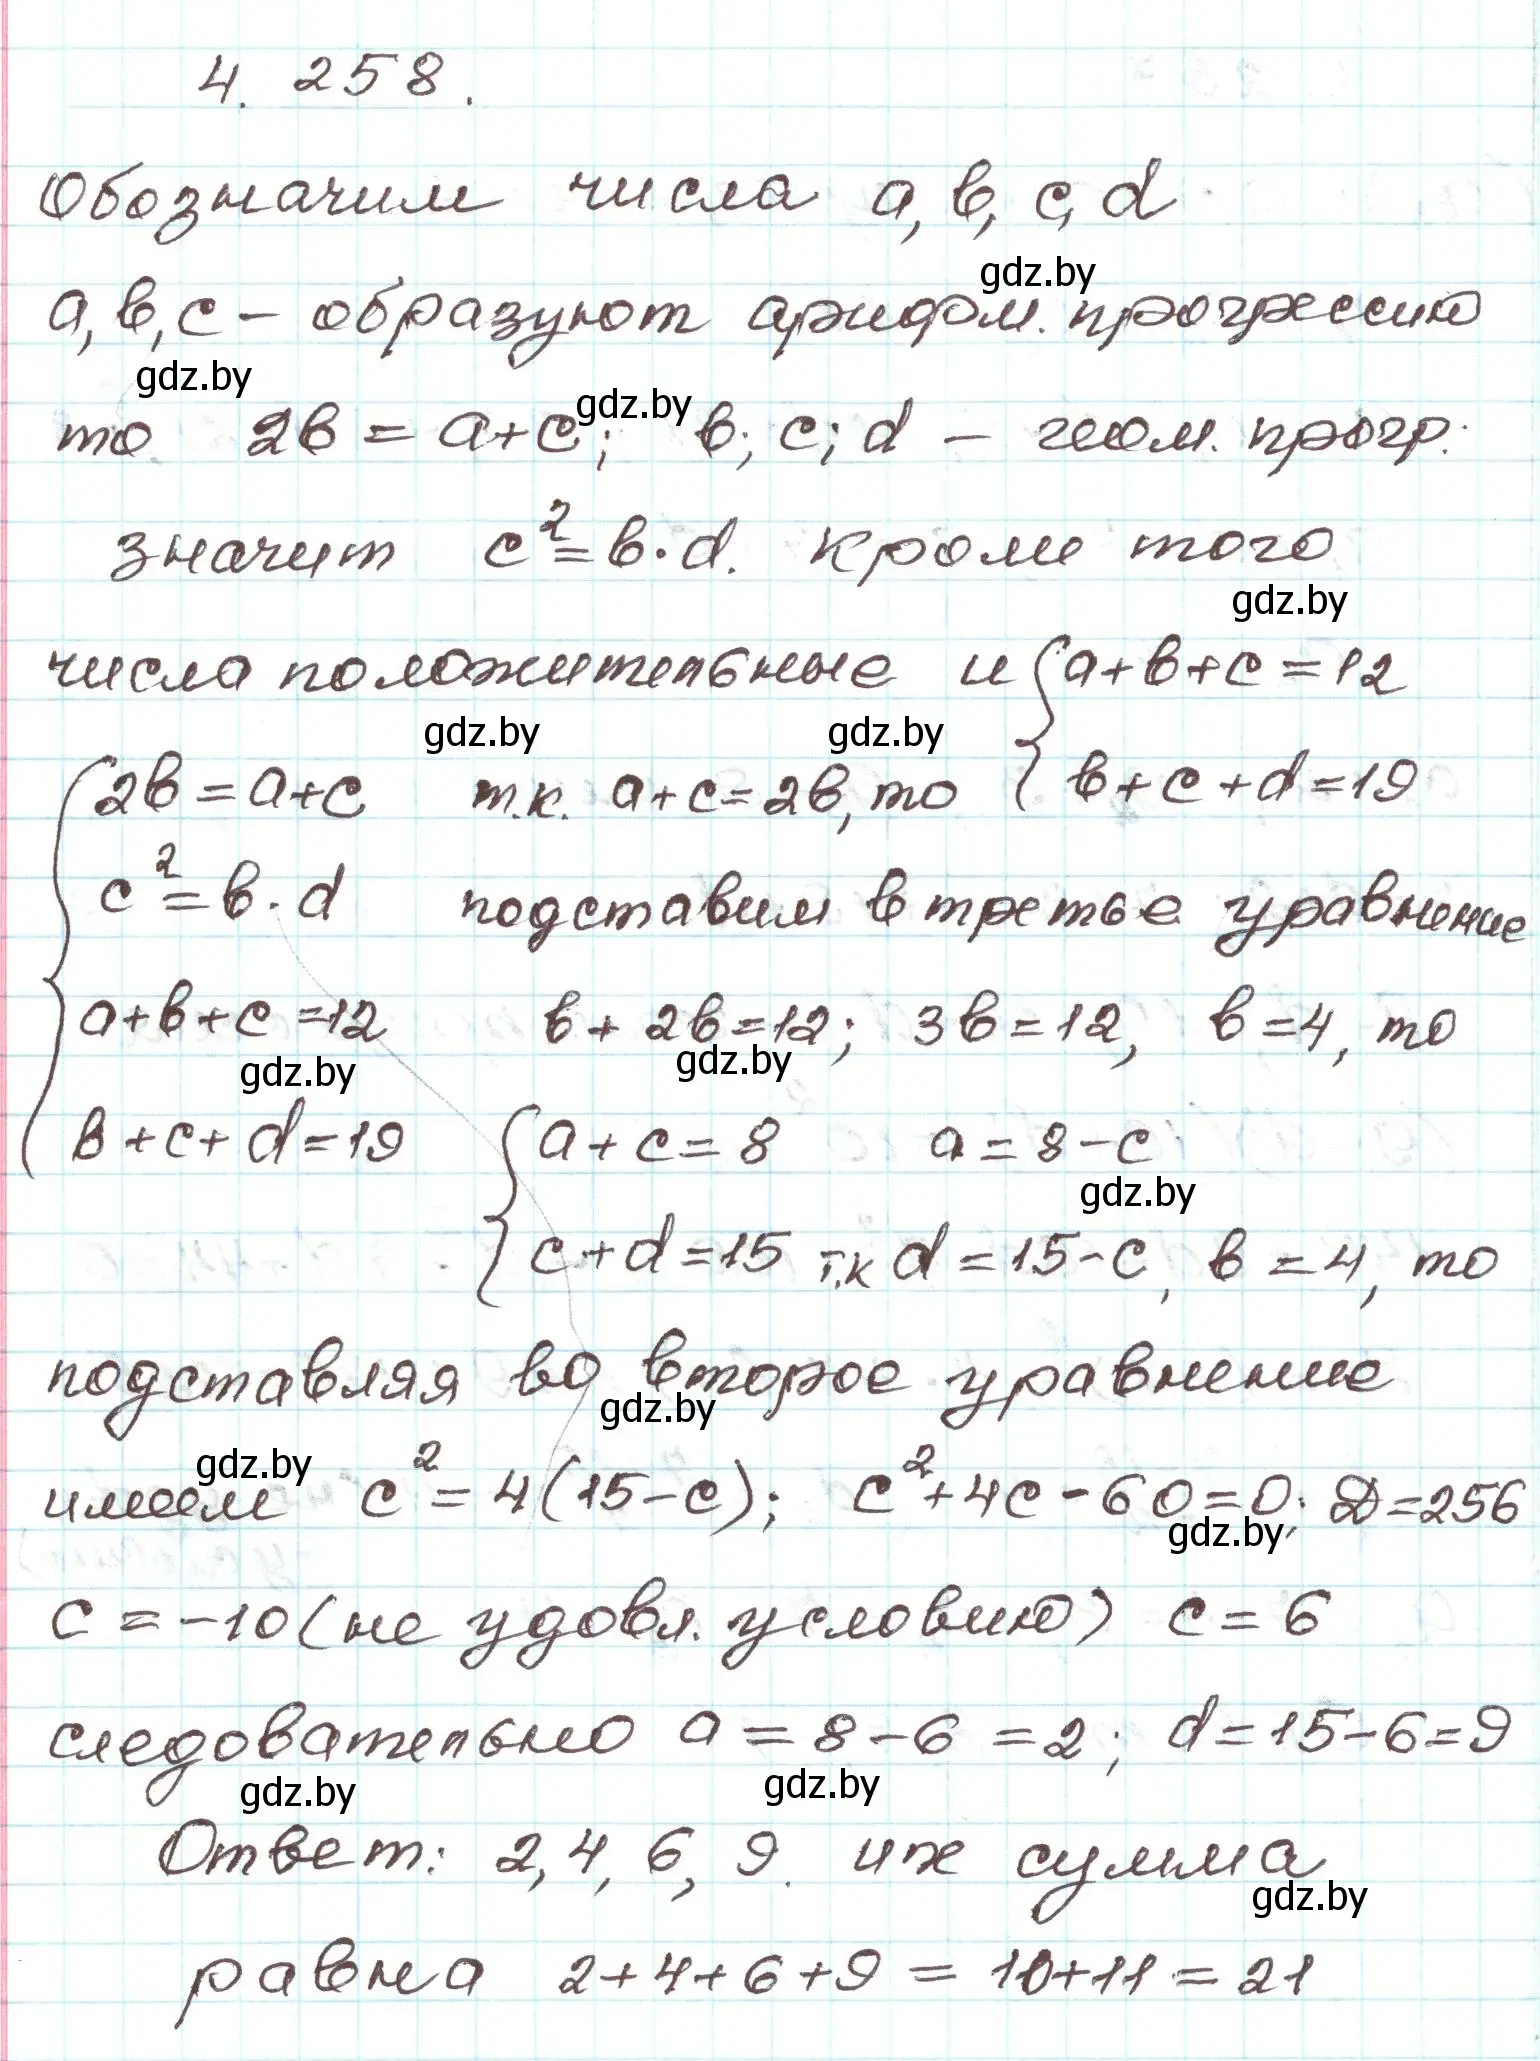 4. 258.
Обозначим числа a, b, c, d
gdz.by
a, b, c – образуют арифм. прогрессию
gdz.by gdz.by
то 2b = a+c; b; c; d – геом. прогр.
значит c² = b·d. кроме того
gdz.by
числа положительные и { a+b+c=12
gdz.by gdz.by
{ 2b = a+c т.к. a+c=2b, то b+c+d=19
c² = b·d подставим в третье уравнение
a+b+c=12 b+2b=12; 3b=12, b=4, то
gdz.by gdz.by
b+c+d=19 { a+c=8 a=8-c
gdz.by
c+d=15 т.к d=15-c, b=4, то
подставляя во второе уравнение
gdz.by
gdz.by
имеем c² = 4(15-c); c²+4c-60=0; D=256
gdz.by
c=-10 (не удовл. условию) c=6
следовательно a=8-6=2; d=15-6=9
gdz.by gdz.by
Ответ: 2, 4, 6, 9. их сумма
gdz.by
равна 2+4+6+9=10+11=21